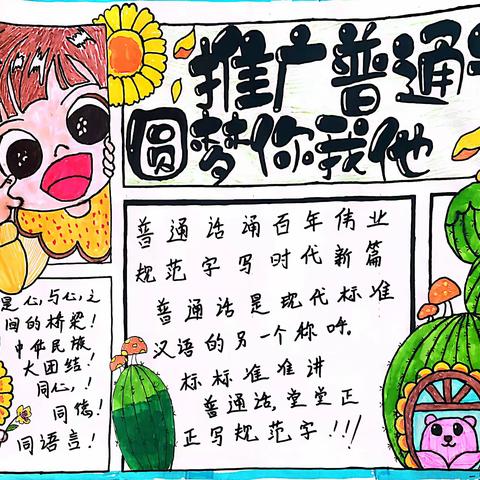 推广普通
圆梦你我他
是心与心之
间的桥梁!
中华民族
大团结!
同心,!
同德!
同语言!
普通话诵百年伟业
规范字写时代新篇
普通话是现代标准
汉语的另一个称呼。
标标准准讲
普通话,堂堂正
正写规范字!!!